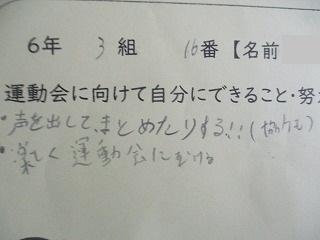 6年 3組 16番【名前
運動会に向けて自分にできること・努
・声を出して、まとめたりする!!(
・楽しく運動会に